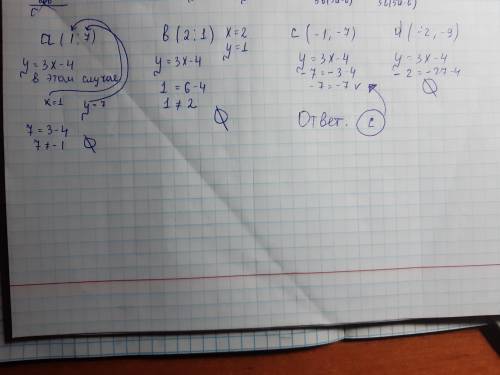 a (1; 7)
y = 3x - 4
в этом случае
x=1 y=7
7 = 3-4
7 ≠ -1 ∅
в (2; 1) x=2
y=1
y = 3x-4
1 = 6-4
1 ≠ 2
∅
c (-1, -7)
y = 3x-4
-7 = -3-4
-7 = -7 v
Ответ. c
d (-2, -9)
y = 3x-4
-2 = -27-4
∅